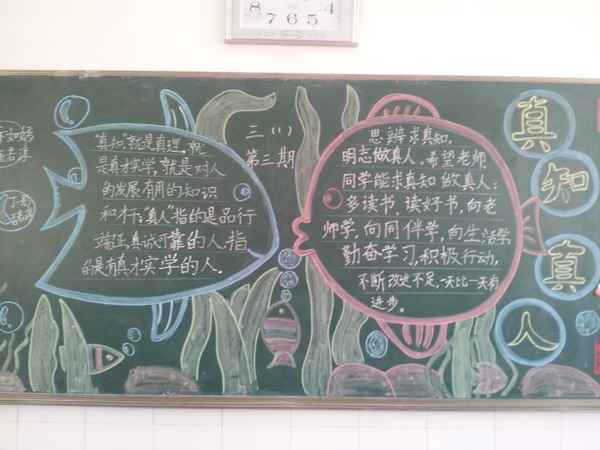 8 7 6 5 4
真知"就是真理,就
是真才实学,就是对人
的发展有用的知识
和才干;"真人"指的是品行
端正,真诚可靠的人,指
的是有真才实学的人.
三(1)
第三期
思辨求真知,
明志做真人,希望老师
同学能求真知做真人:
多读书、读好书,向老
师学,向同伴学,向生活学
勤奋学习,积极行动,
不断改进不足,一天比一天有
进步。
真
知
真
人